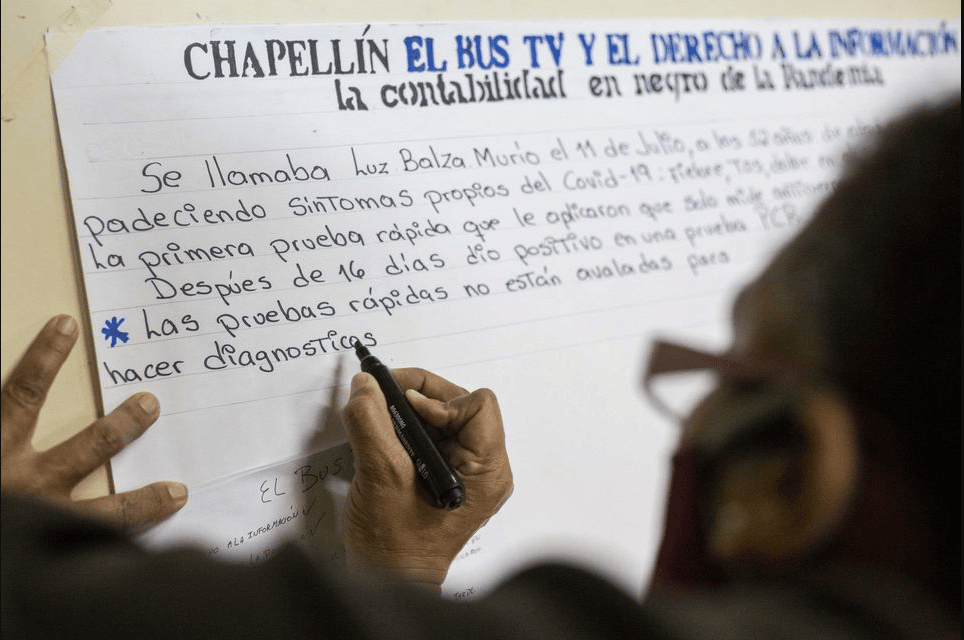 CHAPELLÍN EL BUS TV Y EL DERECHO A LA INFORMACIÓN
la contabilidad en negro de la Pandemia
Se llamaba Luz Balza. Murio el 11 de Julio, a los 52 años de
padeciendo sintomas propios del Covid-19: fiebre, Tos, dolor en
La primera prueba rápida que le aplicaron que solo mide
Despúes de 16 días dio positivo en una prueba PCR
* Las pruebas rápidas no están avaladas para
hacer diagnosticos
EL BUS
A LA INFORMACIÓN